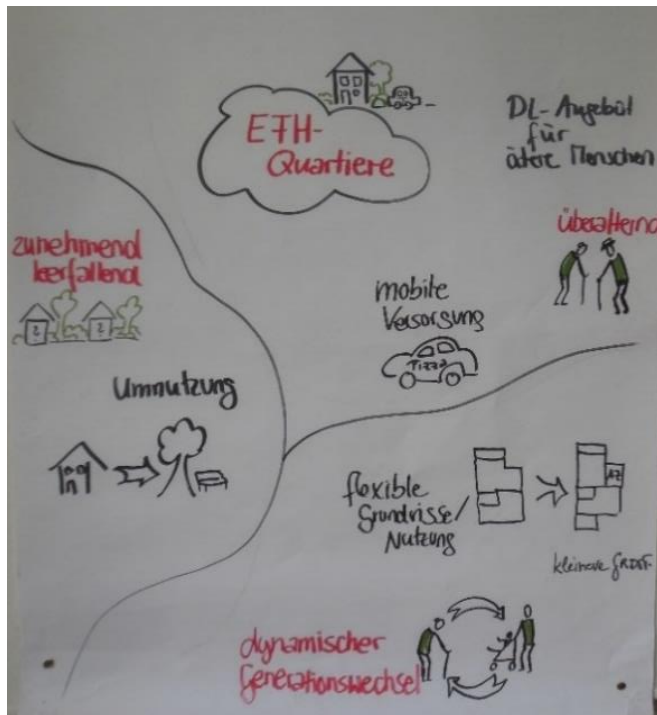 EFH-
Quartiere
DL-Angebot
für
ätere Menschen
zunehmend
leerfallend
? ?
überalternd
mobile
Versorgung
Pizza
Umnutzung
flexible
Grundrisse/
Nutzung
AZ
kleinere
dynamischer
Generationswechsel